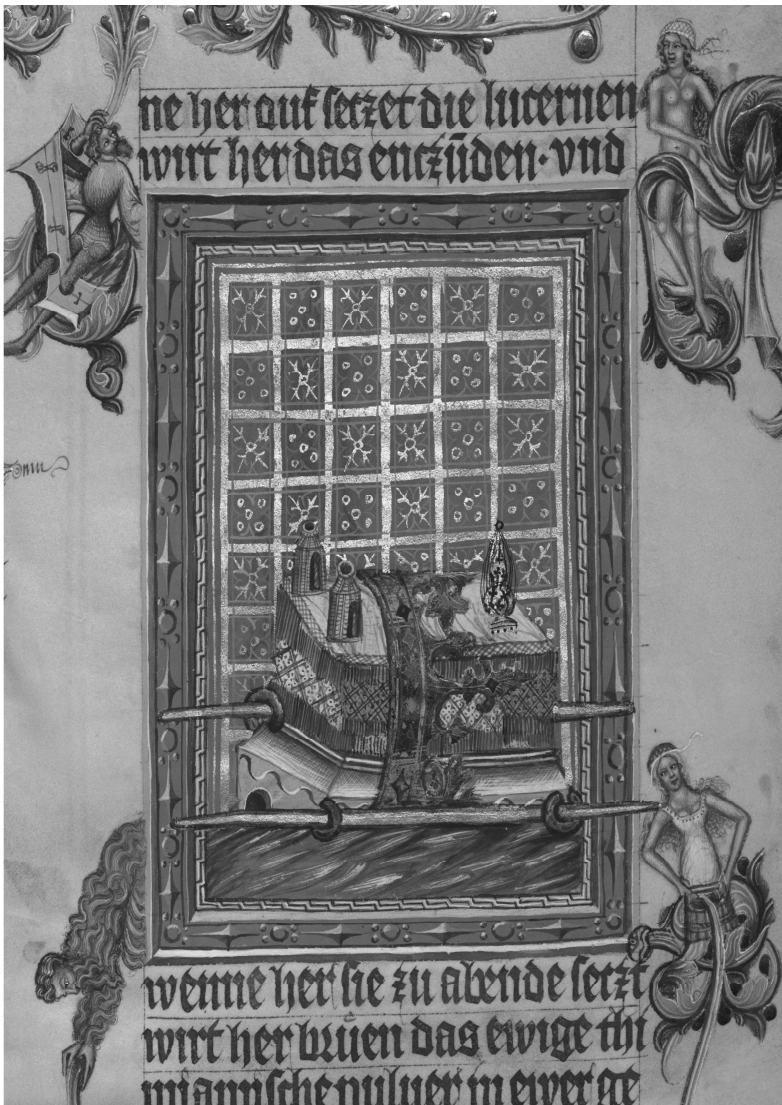 ne her auf seczet die lucernen
wirt her das enczűden · vnd
wenne her sie zu abende seczt
wirt her brűen das ewige thi
miamische puluer in ewer ge